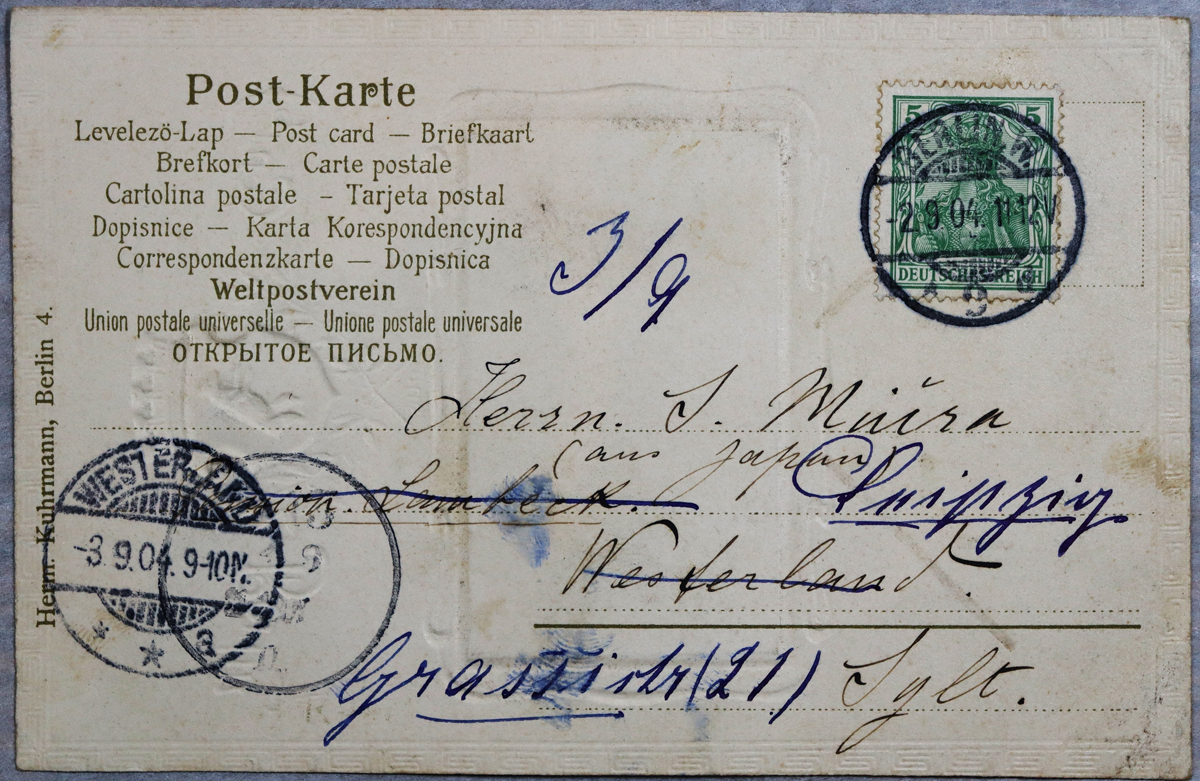 Post-Karte
Levelezö-Lap — Post card — Briefkaart
Brefkort — Carte postale
Cartolina postale – Tarjeta postal
Dopisnice — Karta Korespondencyjna
Correspondenzkarte — Dopisnica
Weltpostverein
Union postale universelle — Unione postale universale
ОТКРЫТОЕ ПИСЬМО.
Herm. Kuhrmann, Berlin 4.
5 5
DEUTSCHES REICH
BERLIN N.
-2.9.04. 11-12V
3/9
Herrn. S. Miüra
(aus Japan)
Leipzig
Westerland.
WESTERLAND
-3.9.04. 9-10N.
* * a
(21) Sylt.